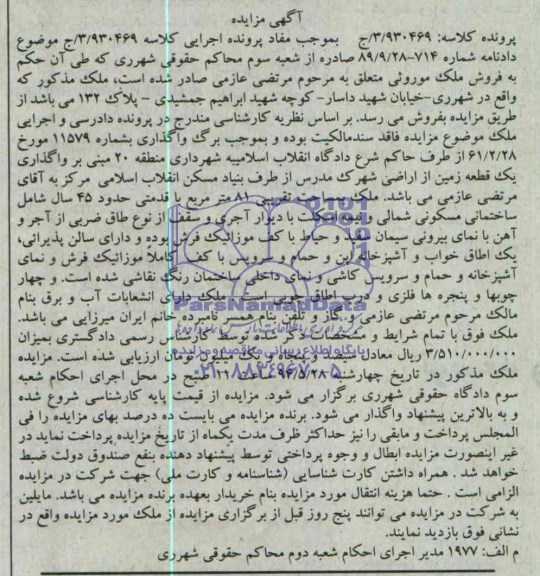 آگهی مزایده
پرونده کلاسه: ۳/۹۳۰۴۶۹/ج بموجب مفاد پرونده اجرایی کلاسه ۳/۹۳۰۴۶۹/ج موضوع
دادنامه شماره ۷۱۴-۸۹/۹/۲۸ صادره از شعبه سوم محاکم حقوقی شهرری که طی آن حکم
به فروش ملک موروثی متعلق به مرحوم مرتضی عازمی صادر شده است، ملک مذکور که
واقع در شهرری-خیابان شهید داسار- کوچه شهید ابراهیم جمشیدی - پلاک ۱۳۲ می باشد از
طریق مزایده بفروش می رسد. بر اساس نظریه کارشناسی مندرج در پرونده دادرسی و اجرایی
ملک موضوع مزایده فاقد سندمالکیت بوده و بموجب برگ واگذاری بشماره ۱۱۵۷۹ مورخ
۶۱/۲/۲۸ از طرف حاکم شرع دادگاه انقلاب اسلامیبه شهرداری منطقه ۲۰ مبنی بر واگذاری
یک قطعه زمین از اراضی شهرک مدرس از طرف بنیاد مسکن انقلاب اسلامی مرکز به آقای
مرتضی عازمی می باشد. ملک به مساحت تقریبی ۸۱ متر مربع با قدمتی حدود ۴۵ سال شامل
ساختمانی مسکونی شمالی و نیم اسکلت با دیوار آجری و سقف از نوع طاق ضربی از آجر و
آهن با نمای بیرونی سیمان سفید و حیاط با کف موزائیک فرش بوده و دارای سالن پذیرائی،
یک اطاق خواب و آشپزخانه اپن و حمام و سرویس با کف کاملا موزائیک فرش و نمای
آشپزخانه و حمام و سرویس کاشی و نمای داخلی ساختمان رنگ نقاشی شده است. و چهار
چوبها و پنجره ها فلزی و درب اطاق چوبی است. ملک دارای انشعابات آب و برق بنام
مالک مرحوم مرتضی عازمی و گاز و تلفن بنام همسر نامبرده خانم ایران میرزایی می باشد.
ملک فوق با تمام شرایط و مشخصات ذکر شده توسط کارشناس رسمی دادگستری بمیزان
۳/۵۱۰/۰۰۰/۰۰۰ ریال معادل سیصد و پنجاه و یک میلیون تومان ارزیابی شده است. مزایده
ملک مذکور در تاریخ چهارشنبه ۹۴/۵/۲۸ ساعت ۱۱ صبح در محل اجرای احکام شعبه
سوم دادگاه حقوقی شهرری برگزار می شود. مزایده از قیمت پایه کارشناسی شروع شده
و به بالاترین پیشنهاد واگذار می شود. برنده مزایده می بایست ده درصد بهای مزایده را فی
المجلس پرداخت و مابقی را نیز حداکثر ظرف مدت یکماه از تاریخ مزایده پرداخت نماید در
غیر اینصورت مزایده ابطال و وجوه پرداختی توسط پیشنهاد دهنده بنفع صندوق دولت ضبط
خواهد شد . همراه داشتن کارت شناسایی (شناسنامه و کارت ملی) جهت شرکت در مزایده
الزامی است . حتما هزینه انتقال مورد مزایده بنام خریدار بعهده برنده مزایده می باشد. مایلین
به شرکت در مزایده می توانند پنج روز قبل از برگزاری مزایده از ملک مورد مزایده واقع در
نشانی فوق بازدید نمایند.
م الف: ۱۹۷۷ مدیر اجرای احکام شعبه دوم محاکم حقوقی شهرری
ParsNamadData
پایگاه اطلاع رسانی مناقصه و مزایده
۰۲۱-۸۸۳۴۹۶۷۰-۵